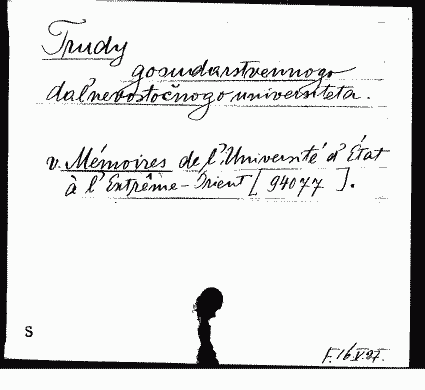 Trudy
gosudarstvennogo
dal'nevostočnogo universiteta.
v. Mémoires de l'Université d'État
à l'Extrême-Orient [94077].
S
F. 16.V.27.